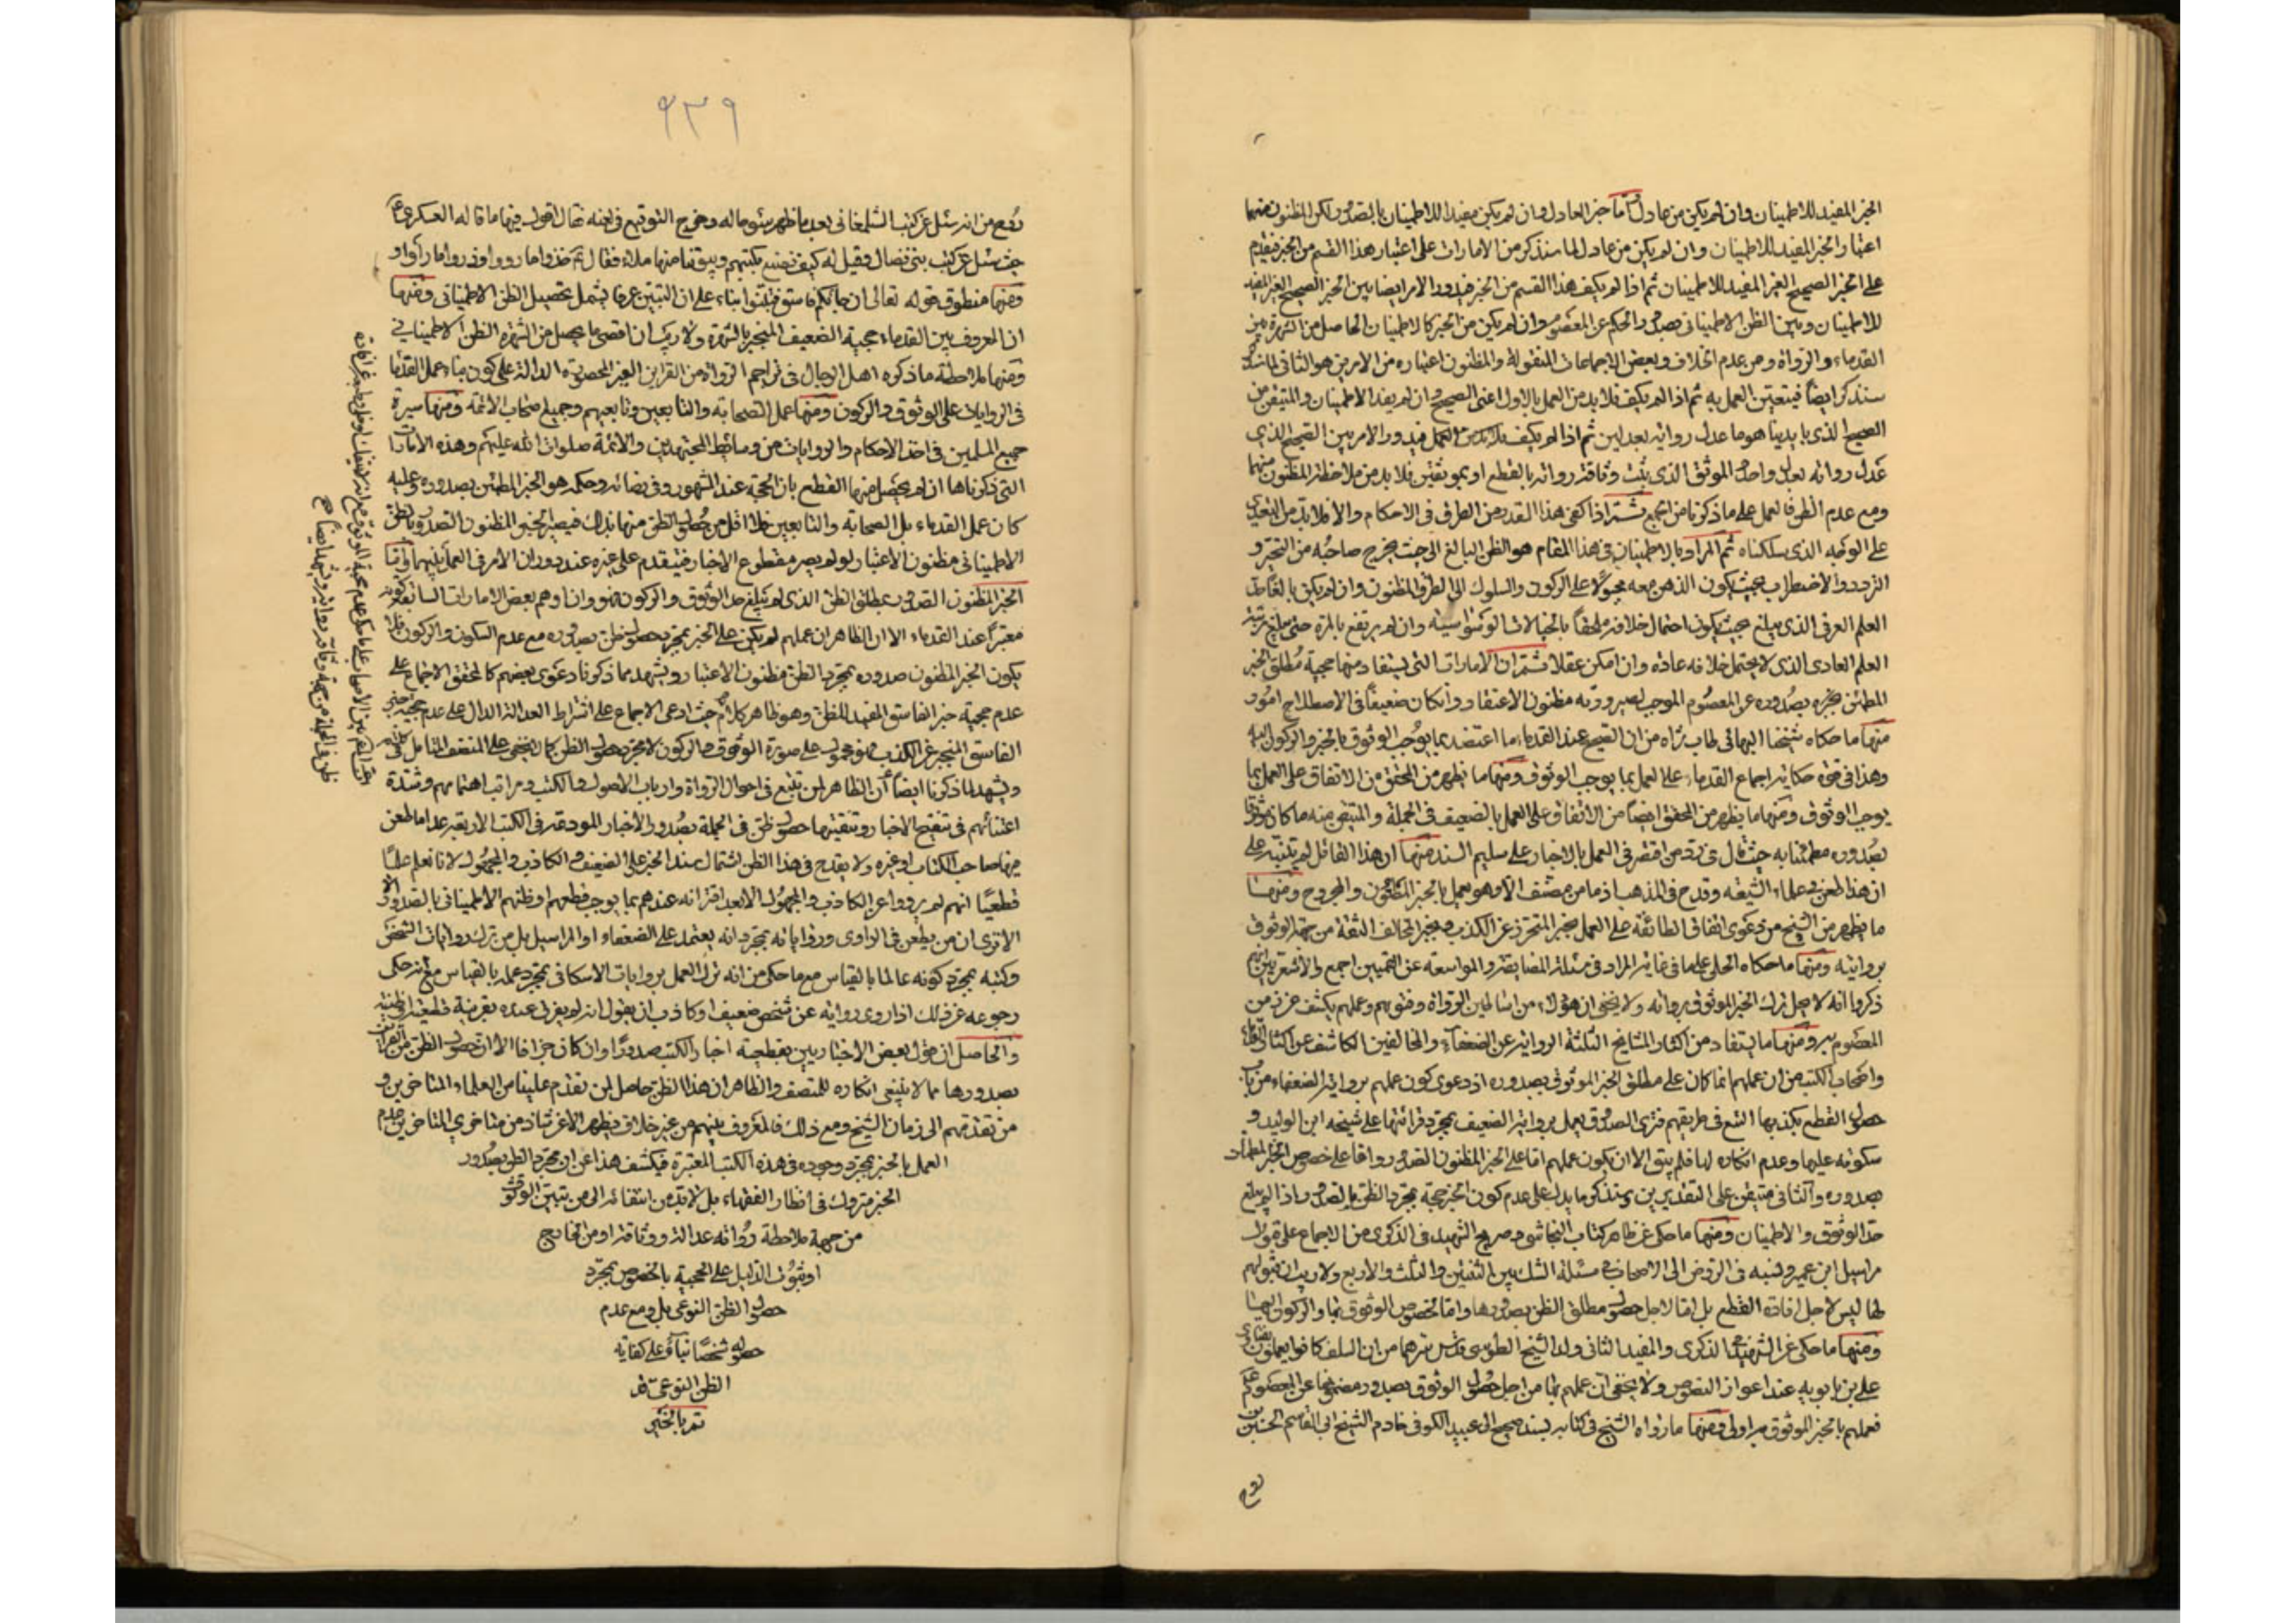 الخبر المفيد للاطمينان وان لم يكن من عادل واما خبر العادل وان لم يكن مفيدا للاطمينان بالصدور لكن المظنون منهما
اعتبار الخبر المفيد للاطمينان وان لم يكن من عادل لما سنذكر من الامارات على اعتبار هذا القسم من الخبر فيقدم
على الخبر الصحيح الغير المفيد للاطمينان ثم اذا لم يكف هذا القسم من الخبر فيدور الامر ايضا بين الخبر الصحيح الغير المفيد
للاطمينان وبين الظن الاطمينانى بصدور الحكم عن المعصوم وان لم يكن من الخبر كالاطمينان الحاصل من الشهرة بين
القدماء والرواة ومن عدم الخلاف وبعض الاجماعات المنقولة والمظنون اعتباره من الامرين هو الثانى لما
سنذكر ايضا فيتعين العمل به ثم اذا لم يكف فلا بد من العمل بالاول اعنى الصحيح وان لم يفد الاطمينان والمتيقن من
الصحيح الذى بايدينا هو ما عدل رواته بعدلين ثم اذا لم يكف فيدور الامر بين الصحيح الذى
عدل رواته بعدل واحد والموثق الذى ثبت وثاقة رواته بالقطع او بموثقين فلا بد من ملاحظة المظنون منهما
ومع عدم الظن فالعمل على ما ذكرنا من الجمع اذا كفى هذا القدر من الطرق فى الاحكام والا فلا بد من التعدى
على الوجه الذى سلكناه ثم المراد بالاطمينان فى هذا المقام هو الظن البالغ الى حيث يخرج صاحبه من التحير و
التردد والاضطراب بحيث يكون الذهن معه مجبولا على الركون والسلوك الى الطرف المظنون وان لم يكن بالغا حد
العلم العرفى الذى يبلغ بحيث يكون احتمال خلافه ملحقا بالخيالات الوسواسية وان لم يرتفع بالمرة حتى يبلغ مرتبة
العلم العادى الذى لا يحتمل خلافه عادة وان امكن عقلا ثم ان الامارات التى يستفاد منها حجية مطلق الخبر
المطمئن بصدوره عن المعصوم الموجب لصيرورته مظنون الاعتقاد وان كان ضعيفا فى الاصطلاح امور
منها ما حكاه شيخنا البهائى طاب ثراه من ان الصحيح عند القدماء ما اعتضد بما يوجب الوثوق بالخبر والركون اليه
وهذا فى قوة حكاية اجماع القدماء على العمل بما يوجب الوثوق ومنها ما يظهر من المحقق من الاتفاق على العمل بما
يوجب الوثوق ومنها ما يظهر من المحقق ايضا من الاتفاق على العمل بالضعيف فى الجملة والمتيقن منه ما كان موثوقا
بصدوره مطمئنا به حيث قال فى رد من اقتصر فى العمل بالاخبار على سليم السند منها ان هذا القائل لم يتنبه على
ان هذا طعن فى علماء الشيعة وقدح فى المذهب اذ ما من مصنف الا وهو يعمل بالخبر المظنون والمجروح ومنها
ما يظهر من الشيخ من دعوى اتفاق الطائفة على العمل بخبر المتحرز عن الكذب وبخبر المخالف الثقة من جهة الوثوق
بروايته ومنها ما حكاه الحلى على ما فى غاية المراد فى مسئلة المضايقة والمواسعة عن القميين اجمع والاشعريين انهم
ذكروا انه لا يحل ترك الخبر الموثوق برواته ولا يخفى ان هؤلاء من اساطين الرواة وفتويهم وعملهم يكشف عن
المعصوم ومنها ما يستفاد من اكثار المشايخ الثلثة الرواية عن الضعفاء والمخالفين الكاشف عن اكثار
واصحاب الكتب من ان عملهم انما كان على مطلق الخبر الموثوق بصدوره اذ دعوى كون عملهم برواية الضعفاء من باب
حصول القطع يكذبها التتبع فى طريقهم فترى الصدوق يعمل برواية الضعيف بمجرد قرائتها على شيخه ابن الوليد و
سكوته عليها وعدم انكاره لها فلم يبق الا ان يكون عملهم اما على الخبر المظنون الصدور واما على خصوص الخبر المطمئن
بصدوره والثانى متيقن على التقديرين وسنذكر ما يدل على عدم كون الخبر حجة بمجرد الظن بالصدور اذا لم يبلغ
حد الوثوق والاطمينان ومنها ما حكى عن ظاهر كتاب النجاشى وصريح الشهيد فى الذكرى من الاجماع على قبول
مراسيل ابن عمير ونسبه فى الروض الى الاصحاب فى مسئلة الشك بين الثنتين والثلث والاربع ولا ريب ان قبولهم
لها ليس لاجل افادة القطع بل اما لاجل حصول مطلق الظن بصدورها واما لخصوص الوثوق بها والركون اليها
ومنها ما حكى عن الشهيد فى الذكرى والمفيد الثانى ولد الشيخ الطوسى قدس سرهما من ان السلف كانوا يعملون بفتاوى
على بن بابويه عند اعواز النصوص ولا يخفى ان عملهم بها من اجل حصول الوثوق بصدور مضمونها عن المعصوم
فعملهم بالخبر الموثوق به اولى ومنها ما رواه الشيخ فى كتابه بسند صحيح الى عبيد الكوفى خادم الشيخ ابى القاسم الحسين بن
روح
٩٣٩
روح من انه سئل عن كتب الشلمغانى بعد ما ظهر سوء حاله وخرج التوقيع فى لعنه فقال اقول فيها ما قاله العسكرى
حيث سئل عن كتب بنى فضال وقيل له كيف نصنع بكتبهم وبيوتنا منها ملاء فقال خذوا ما رووا وذروا ما راوا و
ومنها منطوق قوله تعالى ان جائكم فاسق فتثبتوا بناء على ان التبين عرفا يشمل تحصيل الظن الاطمينانى ومنها
ان المعروف بين القدماء حجية الضعيف المنجبر بالشهرة ولا ريب ان اقصى ما يحصل من الشهرة الظن الاطمينانى
ومنها ملاحظة ما ذكره اهل الرجال فى تراجم الرواة من القراين الغير المحصورة الدالة على كون بناء عمل القدما
فى الروايات على الوثوق والركون ومنها عمل الصحابة والتابعين وتابعيهم وجميع اصحاب الائمة ومنها سيرة
جميع المسلمين فى اخذ الاحكام والروايات من وسائط المجتهدين والائمة صلوات الله عليهم وهذه الامارات
التى ذكرناها ان لم يحصل منها القطع بان الحجة عند المشهور وفى رضائه وحكمه هو الخبر المطمئن بصدوره وعليه
كان عمل القدماء بل الصحابة والتابعين فلا اقل من حصول الظن منها بذلك فيصير الخبر المظنون الصدور بالظن
الاطمينانى مظنون الاعتبار لو لم يصر مقطوع الاخبار فيتقدم على غيره عند دوران الامر فى العمل بينهما واما
الخبر المظنون الصدور بمطلق الظن الذى لم يبلغ حد الوثوق والركون فهو وان اوهم بعض الامارات السابقة كونه
معتبرا عند القدماء الا ان الظاهر ان عملهم لم يكن على الخبر بمجرد حصول ظن بصدوره مع عدم السكون والركون فلا
يكون الخبر المظنون صدوره بمجرد الظن مظنون الاعتبار ويشهد بما ذكرنا دعوى بعضهم كالمحقق الاجماع على
عدم حجية خبر الفاسق المفيد للظن وهو ظاهر كلام حيث ادعى الاجماع على اشتراط العدالة الدال على عدم حجية خبر
الفاسق المتحرز عن الكذب فهو محمول على صورة الوثوق والركون لا مجرد حصول الظن كما لا يخفى على المنصف المتامل
ويشهد لما ذكرنا ايضا ان الظاهر لمن تتبع فى احوال الرواة وارباب الاصول والكتب ومراتب اهتمامهم وشدة
اعتنائهم فى تنقيح الاخبار وتنقيتها حصول ظن فى الجملة بصدور الاخبار المودعة فى الكتب الاربعة عدا ما طعن
فيها صاحب الكتاب او غيره ولا يقدح فى هذا الظن اشتمال سند الخبر على الضعيف والكاذب والمجهول لانا نعلم علما
قطعيا انهم لم يرووا عن الكاذب والمجهول الا بعد اقترانه عندهم بما يوجب قطعهم او ظنهم الاطمينانى بالصدور
الا ترى ان من يطعن فى الراوى ورواياته بمجرد انه يعتمد على الضعفاء او المراسيل بل من ترك روايات الشخص
وكتبه بمجرد كونه عاملا بالقياس مع ما حكى من انه ترك العمل بروايات الاسكافى بمجرد عمله بالقياس مع انه حكى
رجوعه عن ذلك اذا روى رواية عن شخص ضعيف او كاذب ان يقول انه لم يقترن عنده بقرينة قطعية او ظنية
والحاصل ان قول بعض الاخباريين بقطعية اخبار الكتب صدورا وان كان جزافا الا ان حصول الظن من القراين
بصدورها مما لا ينبغى انكاره للمنصف والظاهر ان هذا الظن حاصل لمن تقدم علينا من العلماء المتاخرين و
من تقدمهم الى زمان الشيخ ومع ذلك فالمعروف بينهم من غير خلاف يظهر الا عن شاذ من متاخرى المتاخرين عدم
العمل بالخبر بمجرد وجوده فى هذه الكتب المعتبرة فيكشف هذا عن ان مجرد الظن بصدور
الخبر متروك فى انظار الفقهاء بل لا بد من انتقائه الى من تبين الوثوق
من جهة ملاحظة رواته عدالة ووثاقة او من الخارج
او ثبوت الدليل على الحجية بالخصوص بمجرد
حصول الظن النوعى بل ومع عدم
حصوله شخصا بناء على كفاية
الظن النوعى
تم بالخير